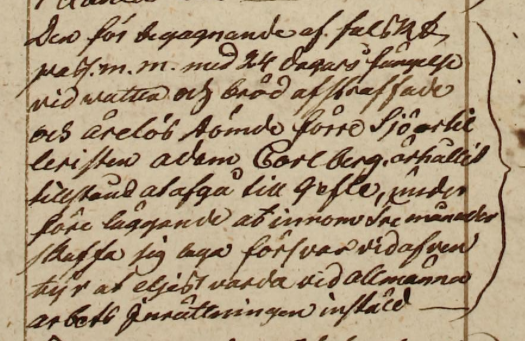 Den för begagnande af falskt
pass. m. m. med 24 dagars fängelse
vid vatten och bröd afstraffade
och ärelös dömde förre Sjöartil
leristen Adam Carlberg, erhållit
tillstånd at afgå till Gefle, under
före läggande at innom tre månader
skaffa sig laga försvar vid afven
tyr at eljest varda vid allmänna
arbets Inrättningen inställd